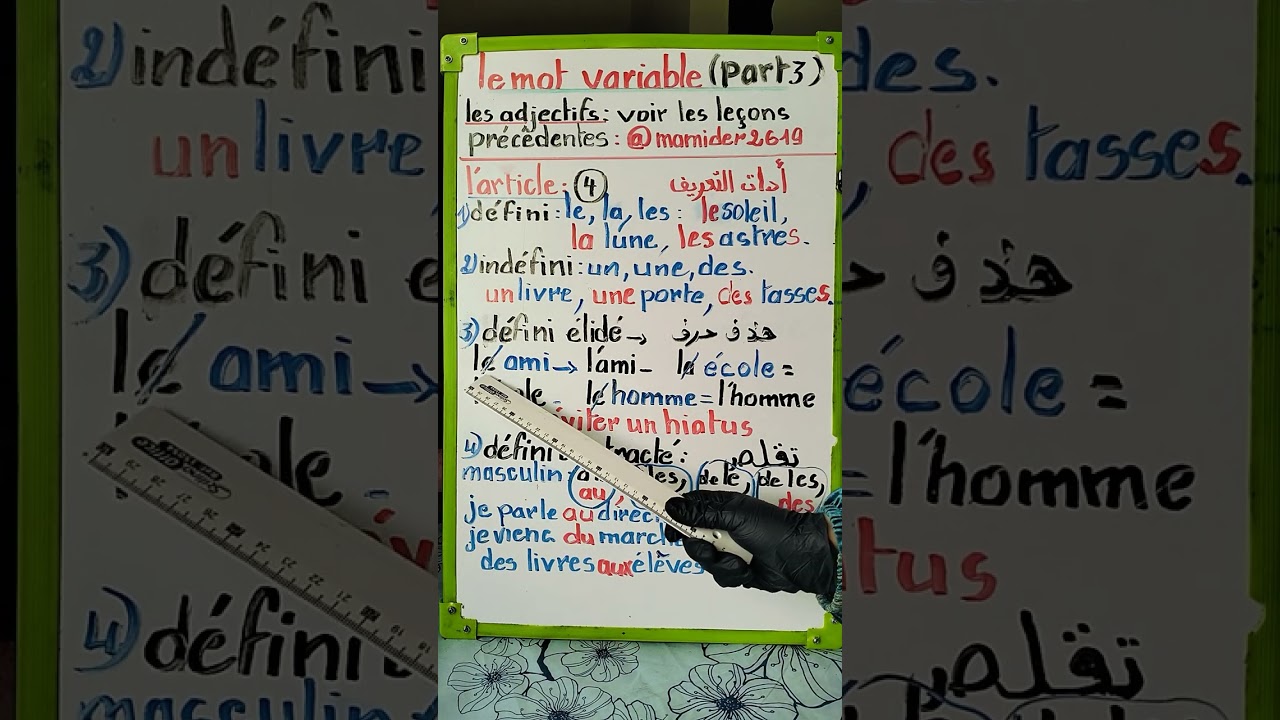 le mot variable (part 3)
les adjectifs: voir les leçons
précédentes: @mamider2619
l'article: 4 أدات التعريف
1) défini: le, la, les: le soleil,
la lune, les astres.
2) indéfini: un, une, des.
un livre, une porte, des tasses.
3) défini élidé → هذف حرف
le ami → l'ami - la école =
le homme = l'homme
éviter un hiatus
4) défini تقلص
masculin de le, de les,
au des
je parle au
je viens du
des livres aux élèves